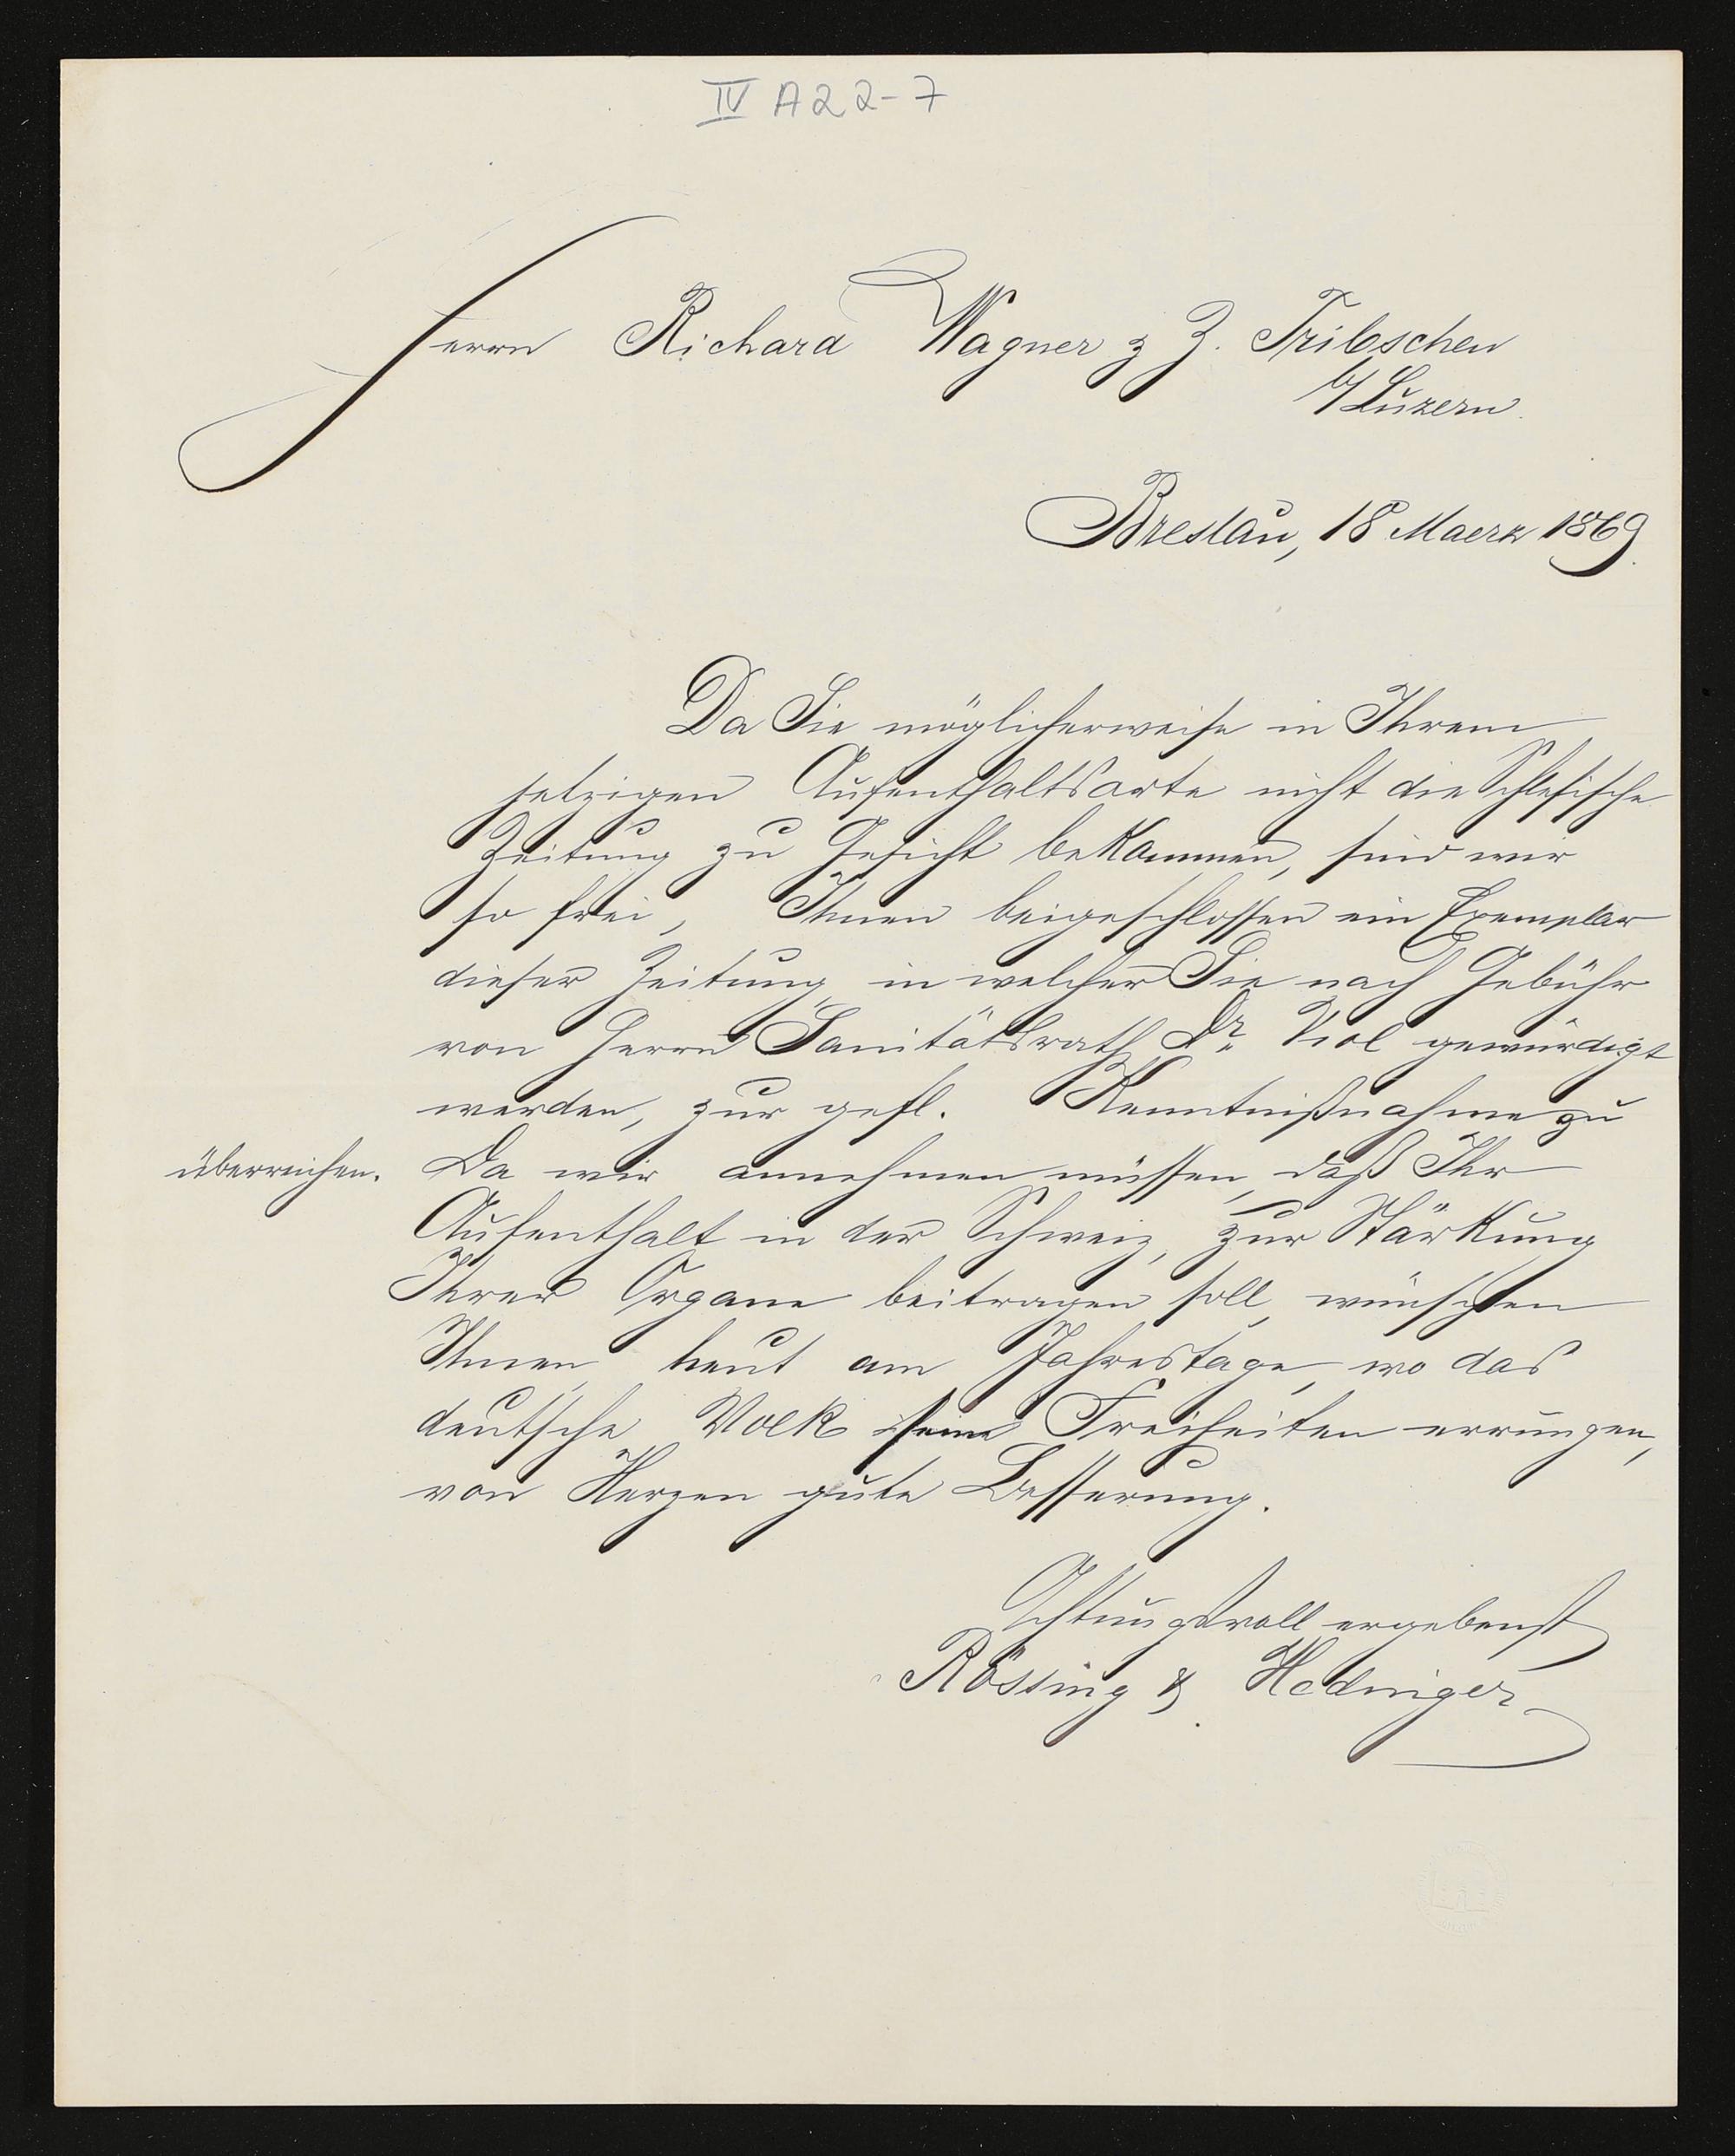 IV A 22-7
Herrn Richard Wagner z Z. Tribschen
b/Luzern.
Breslau, 18 Maerz 1869.
Da Sie möglicherweise in Ihrem
jetzigen Aufenthaltsorte nicht die Schlesische
Zeitung zu Gesicht bekommen, sind wir
so frei, Ihnen beigeschlossen ein Exemplar
dieser Zeitung, in welcher Sie nach Gebühr
von Herrn Sanitätsrath Dr. Viol gewürdigt
werden, zur gefl. Kenntnißnahme zu
überreichen. Da wir annehmen müssen, daß Ihr
Aufenthalt in der Schweiz, zur Stärkung
Ihrer Organe beitragen soll, wünschen
Ihnen, heut am Jahrestage, wo das
deutsche Volk seine Freiheiten errungen,
von Herzen gute Besserung.
Achtungsvoll ergebenst
Rössing & Hedinger